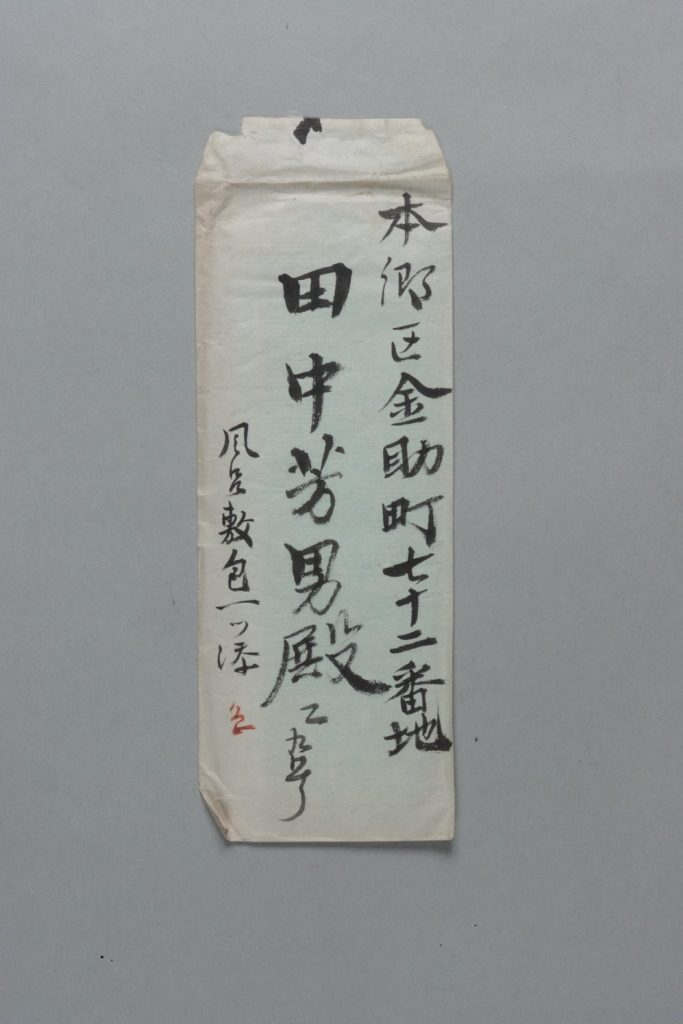 本郷区金助町七十二番地
田中芳男殿
風呂敷包一ツ添